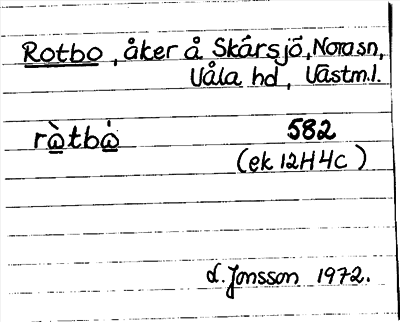 Rotbo, åker å Skärsjö, Nora sn,
Våla hd, Västm.l.
ràtbȧ 582
(ek 12H4c)
L. Jonsson 1972.